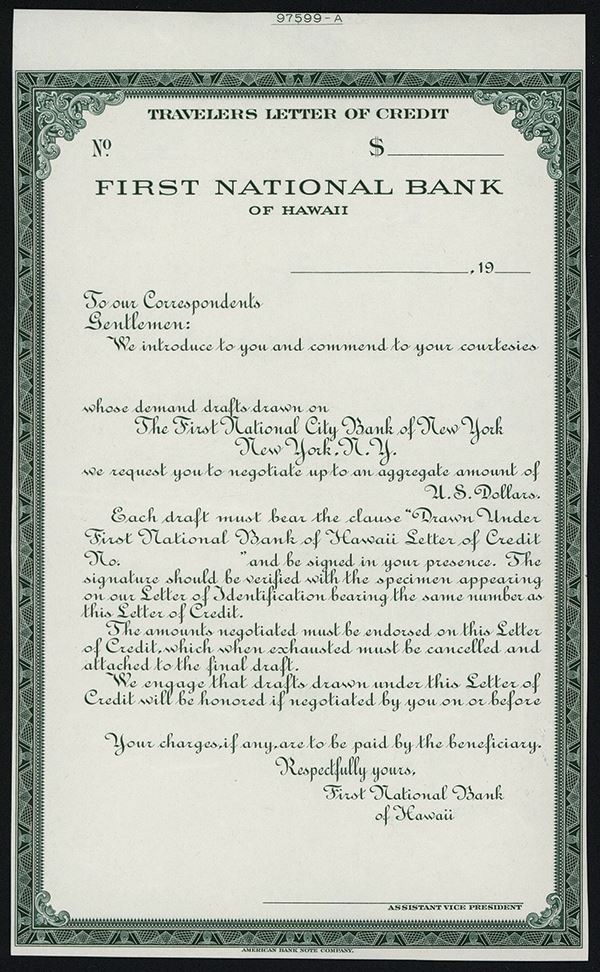 97599-A
TRAVELERS LETTER OF CREDIT
No. $
FIRST NATIONAL BANK
OF HAWAII
, 19
To our Correspondents
Gentlemen:
We introduce to you and commend to your courtesies
whose demand drafts drawn on
The First National City Bank of New York
New York, N.Y.
we request you to negotiate up to an aggregate amount of
U.S. Dollars.
Each draft must bear the clause "Drawn Under
First National Bank of Hawaii Letter of Credit
No. " and be signed in your presence. The
signature should be verified with the specimen appearing
on our Letter of Identification bearing the same number as
this Letter of Credit.
The amounts negotiated must be endorsed on this Letter
of Credit, which when exhausted must be cancelled and
attached to the final draft.
We engage that drafts drawn under this Letter of
Credit will be honored if negotiated by you on or before
Your charges, if any, are to be paid by the beneficiary.
Respectfully yours,
First National Bank
of Hawaii
ASSISTANT VICE PRESIDENT
AMERICAN BANK NOTE COMPANY.